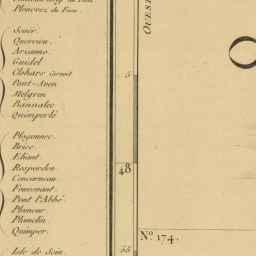 Plouvez du Fou.
Scaër.
Querrien.
Arzanno.
Guidel
Clohars Carnoet
Pont-Aven
Melgven
Bannalec
Quimperlé
Plogonnec.
Briec.
Elliant
Rosporden
Concarneau
Fouesnant.
Pont l'Abbé.
Plumeur
Plumelin
Quimper.
Isle de Sein.
OUEST
5
48
55
O
Nº. 174.